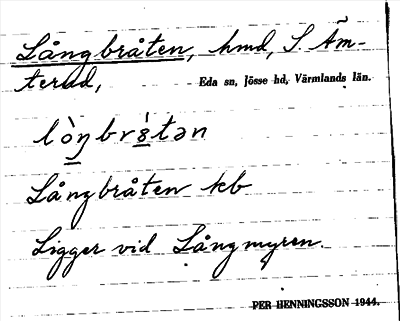 Långbråten, hmd, S. Åm-
terud, Eda sn, Jösse hd, Värmlands län.
lòŋbro̊̀tən
Långbråten kb
Ligger vid Långmyren.
PER HENNINGSSON 1944.